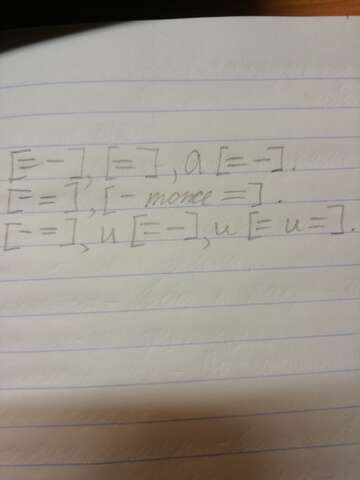 [= -], [=], а [= -].
[- =], [- тоже =].
[- =], и [= -], и [= и =].